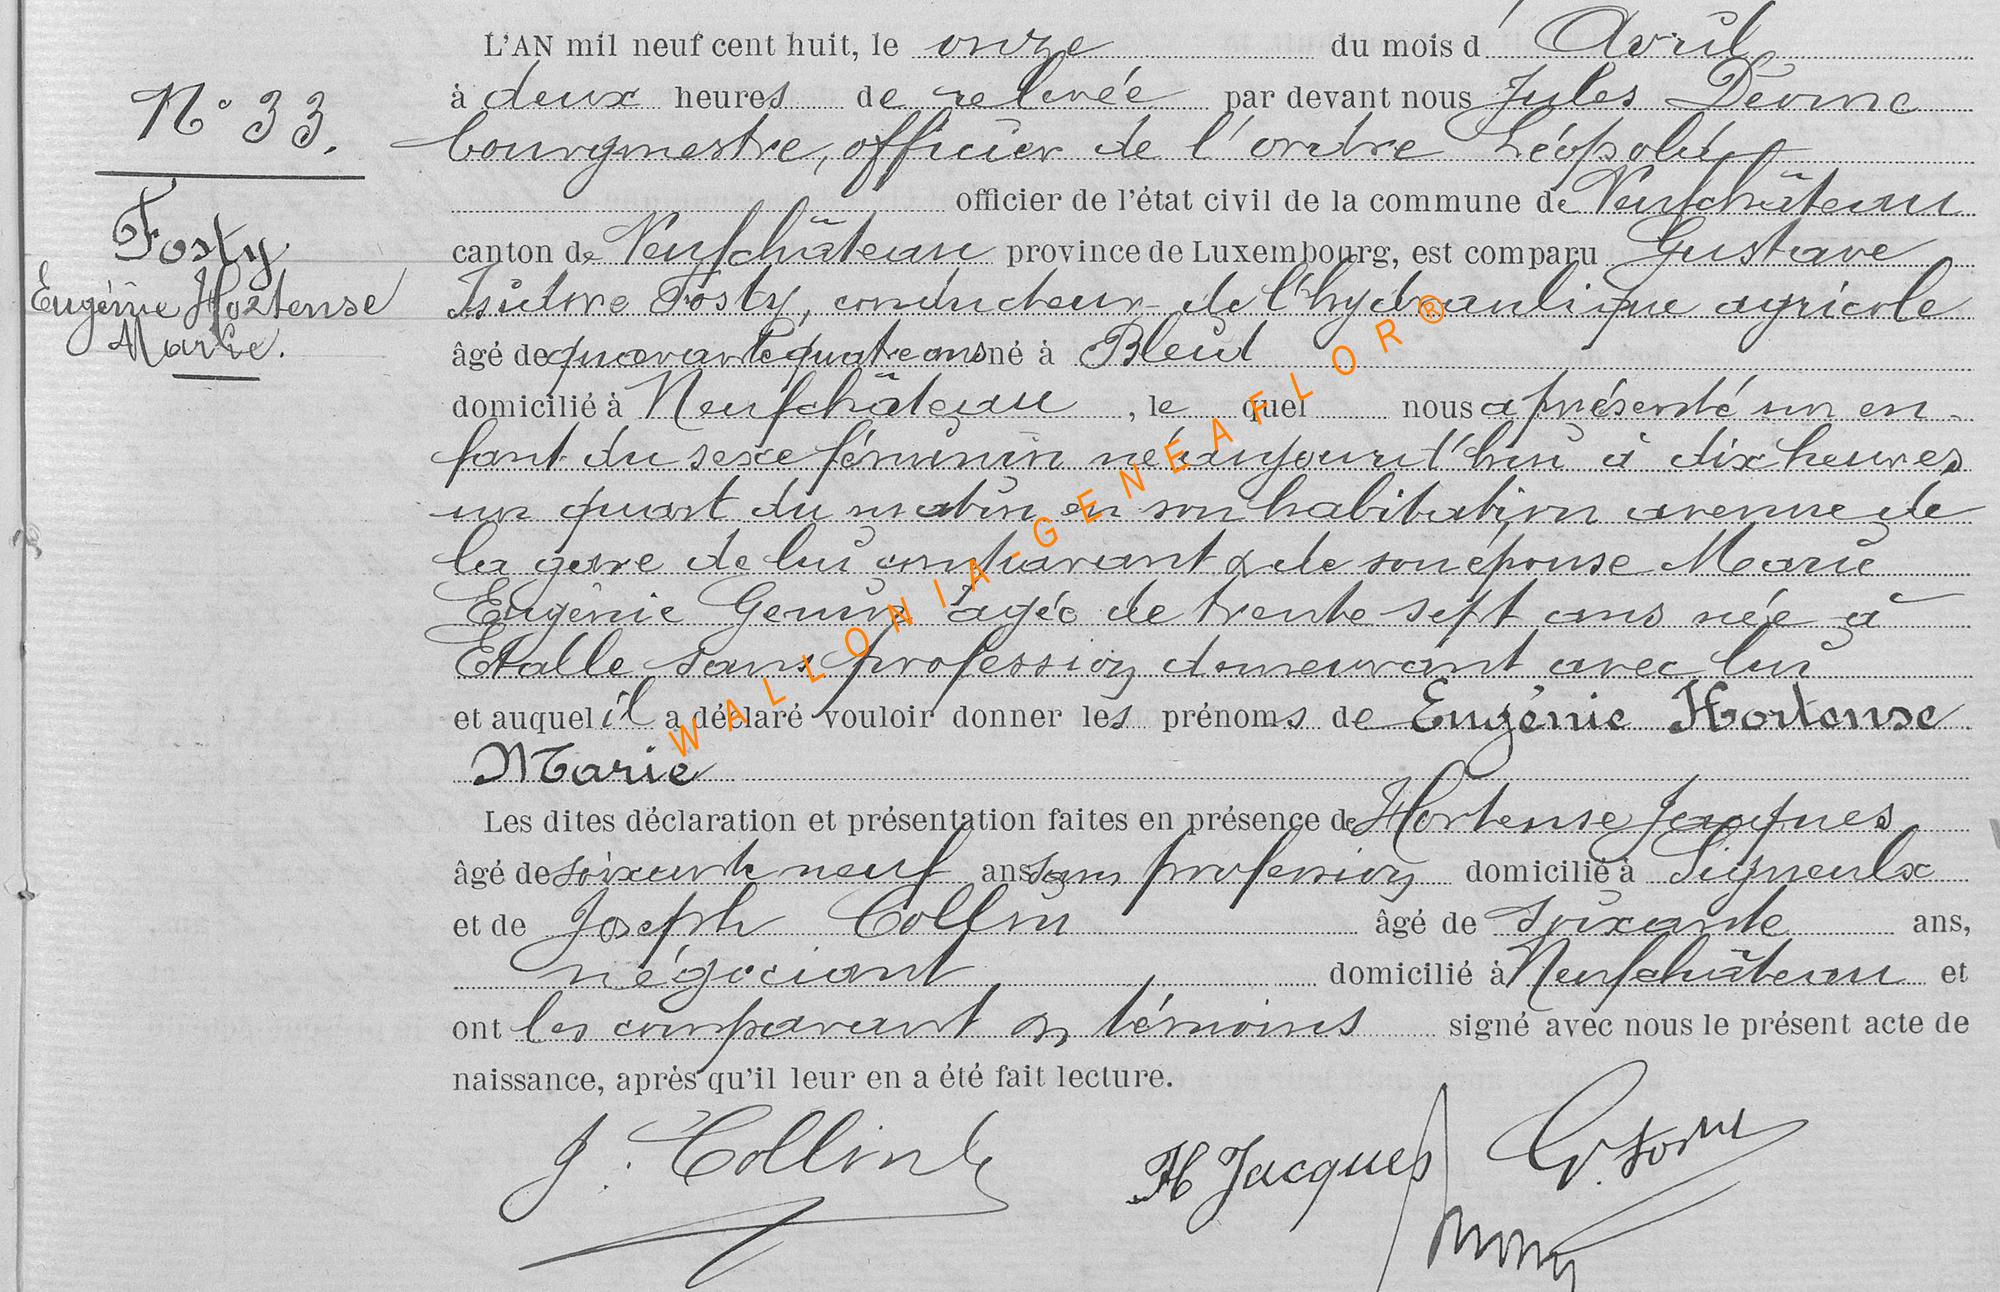 L'AN mil neuf cent huit, le onze du mois d'Avril
à deux heures de relevée par devant nous Jules
N° 33.
bourgmestre, officier de l'ordre Léopold
officier de l'état civil de la commune de Neufchâteau
Fosty
Eugénie Hortense
Marie.
canton de Neufchâteau province de Luxembourg, est comparu Gustave
Isidore Fosty, conducteur de l'hydraulique agricole
âgé de quarante quatre ans né à Bleid
domicilié à Neufchâteau, le quel nous a présenté un en-
fant du sexe féminin né aujourd'hui à dix heures
un quart du matin en son habitation avenue de
la gare de lui comparant & de son épouse Marie
Eugénie Genin âgée de trente sept ans née à
Etalle sans profession demeurant avec lui
et auquel il a déclaré vouloir donner les prénoms de Eugénie Hortense
Marie
Les dites déclaration et présentation faites en présence de Hortense Jacques
âgé de soixante neuf ans sans profession domicilié à Signeulx
et de Joseph Collin âgé de soixante ans,
négociant domicilié à Neufchâteau et
ont les comparant & témoins signé avec nous le présent acte de
naissance, après qu'il leur en a été fait lecture.
J. Collin
H Jacques
G. Fosty
WALLONIA-GENEAFLOR®